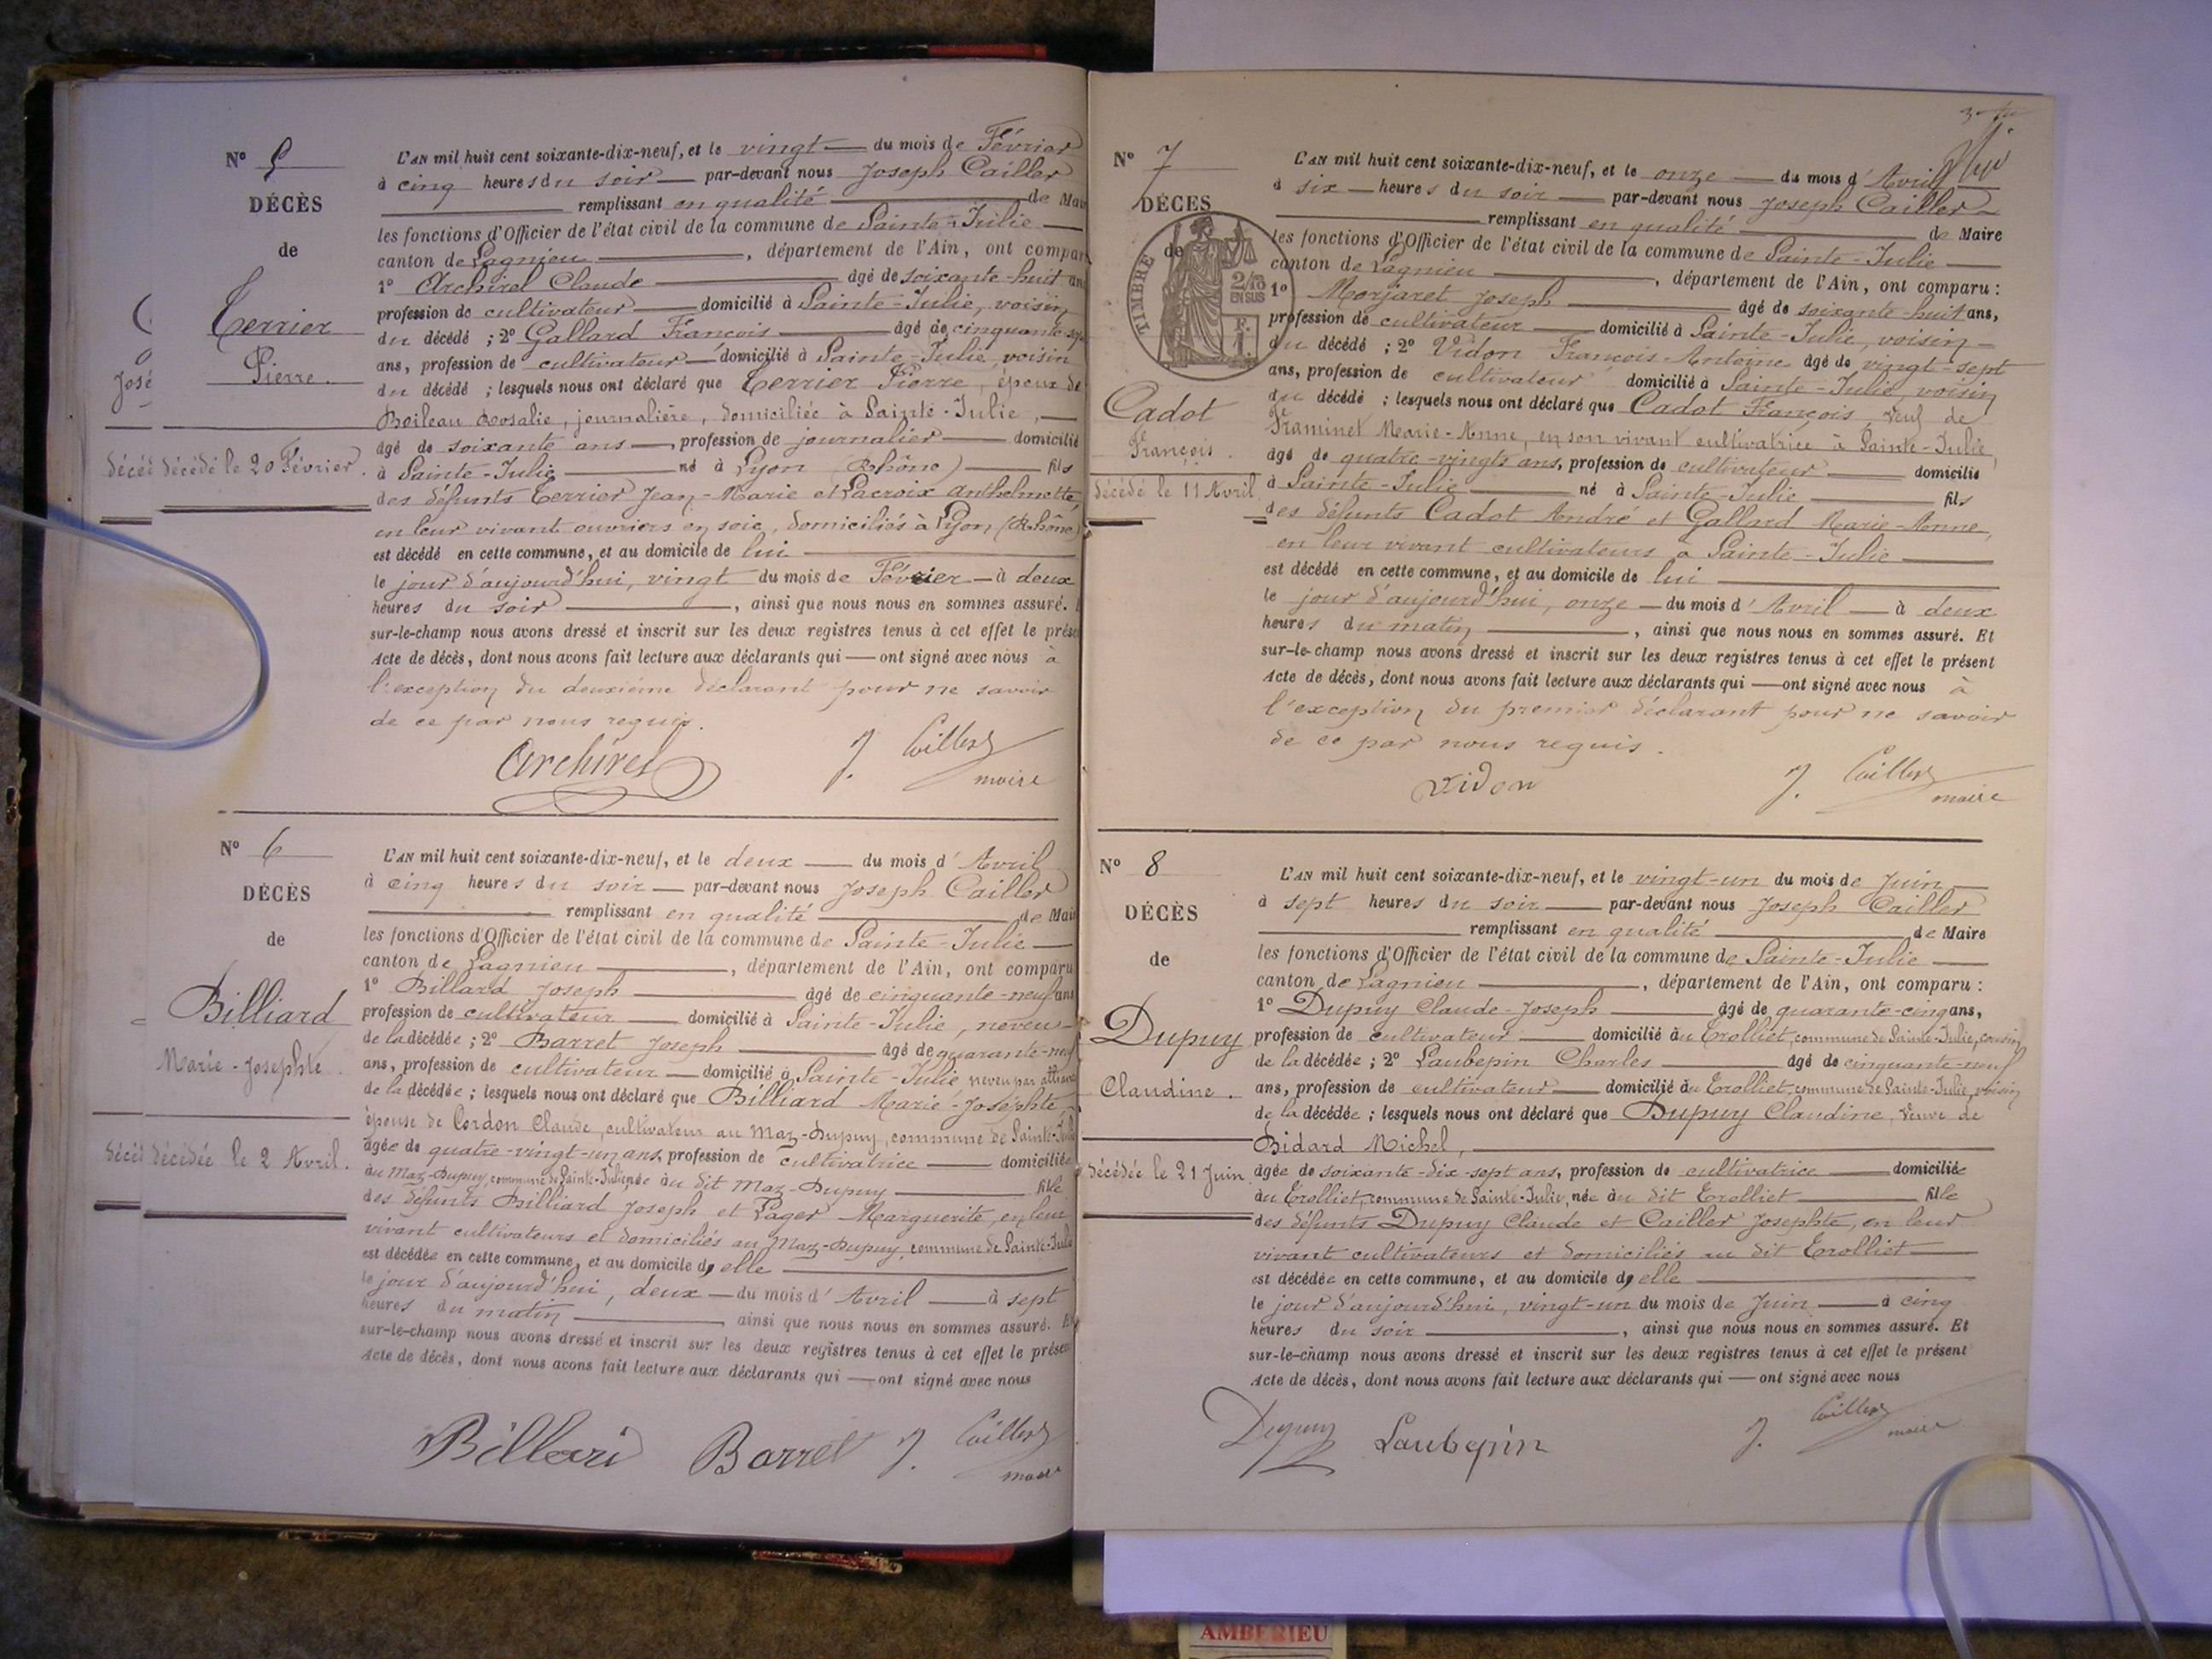 Nº 5
DÉCÈS
de
Terrier
Pierre.
José
décédé le 20 Février.
L'AN mil huit cent soixante-dix-neuf, et le vingt du mois de Février
à cinq heures du soir par-devant nous Joseph Cailler
remplissant en qualité de Mai
les fonctions d'Officier de l'état civil de la commune de Sainte-Julie
canton de Lagnieu, département de l'Ain, ont compar
1º Archirel Claude âgé de soixante-huit an
profession de cultivateur domicilié à Sainte-Julie, voisin
du décédé ; 2º Gallard François âgé de cinquante-sept
ans, profession de cultivateur domicilié à Sainte-Julie, voisin
du décédé ; lesquels nous ont déclaré que Terrier Pierre, époux de
Boileau Rosalie, journalière, domiciliée à Sainte-Julie,
âgé de soixante ans, profession de journalier domicilié
à Sainte-Julie né à Lyon (Rhône) fils
des défunts Terrier Jean-Marie et Lacroix Anthelmette
en leur vivant ouvriers en soie, domiciliés à Lyon (Rhône)
est décédé en cette commune, et au domicile de lui
le jour d'aujourd'hui, vingt du mois de Février à deux
heures du soir, ainsi que nous nous en sommes assuré. E
sur-le-champ nous avons dressé et inscrit sur les deux registres tenus à cet effet le prése
Acte de décès, dont nous avons fait lecture aux déclarants qui ont signé avec nous à
l'exception du deuxième déclarant pour ne savoir
de ce par nous requis.
Archirel J. Cailler
maire
Nº 6
DÉCÈS
de
Billiard
Marie-Josephte.
décédée le 2 Avril.
L'AN mil huit cent soixante-dix-neuf, et le deux du mois d'Avril
à cinq heures du soir par-devant nous Joseph Cailler
remplissant en qualité de Mai
les fonctions d'Officier de l'état civil de la commune de Sainte-Julie
canton de Lagnieu, département de l'Ain, ont comparu
1º Billard Joseph âgé de cinquante-neuf ans
profession de cultivateur domicilié à Sainte-Julie, neveu
de la décédée ; 2º Barret Joseph âgé de quarante-neuf
ans, profession de cultivateur domicilié à Sainte-Julie neveu par alliance
de la décédée ; lesquels nous ont déclaré que Billiard Marie-Josephte,
épouse de Cordon Claude, cultivateur au Maz-Dupuy, commune de Sainte-Julie
âgée de quatre-vingt-un ans, profession de cultivatrice domiciliée
au Maz-Dupuy, commune de Sainte-Julie, née au dit Maz-Dupuy fille
des défunts Billiard Joseph et Pager Marguerite, en leur
vivant cultivateurs et domiciliés au Maz-Dupuy, commune de Sainte-Julie
est décédée en cette commune, et au domicile d'elle
le jour d'aujourd'hui, deux du mois d'Avril à sept
heures du matin ainsi que nous nous en sommes assuré. E
sur-le-champ nous avons dressé et inscrit sur les deux registres tenus à cet effet le présen
Acte de décès, dont nous avons fait lecture aux déclarants qui ont signé avec nous
Billard Barret J. Cailler
maire
Nº 7
DÉCÈS
de
TIMBRE
2/10
EN SUS
Cadot
François.
décédé le 11 Avril
L'AN mil huit cent soixante-dix-neuf, et le onze du mois d'Avril
à six heures du soir par-devant nous Joseph Cailler
remplissant en qualité de Maire
les fonctions d'Officier de l'état civil de la commune de Sainte-Julie
canton de Lagnieu, département de l'Ain, ont comparu :
1º Morjaret Joseph âgé de soixante-huit ans,
profession de cultivateur domicilié à Sainte-Julie, voisin
du décédé ; 2º Vidon François-Antoine âgé de vingt-sept
ans, profession de cultivateur domicilié à Sainte-Julie, voisin
du décédé ; lesquels nous ont déclaré que Cadot François, veuf de
Framinet Marie-Anne, en son vivant cultivatrice à Sainte-Julie,
âgé de quatre-vingts ans, profession de cultivateur domicilié
à Sainte-Julie né à Sainte-Julie fils
des défunts Cadot André et Gallard Marie-Anne,
en leur vivant cultivateurs à Sainte-Julie
est décédé en cette commune, et au domicile de lui
le jour d'aujourd'hui, onze du mois d'Avril à deux
heures du matin, ainsi que nous nous en sommes assuré. Et
sur-le-champ nous avons dressé et inscrit sur les deux registres tenus à cet effet le présent
Acte de décès, dont nous avons fait lecture aux déclarants qui ont signé avec nous à
l'exception du premier déclarant pour ne savoir
de ce par nous requis.
Vidon J. Cailler
maire
Nº 8
DÉCÈS
de
Dupuy
Claudine.
décédée le 21 Juin
L'AN mil huit cent soixante-dix-neuf, et le vingt-un du mois de Juin
à sept heures du soir par-devant nous Joseph Cailler
remplissant en qualité de Maire
les fonctions d'Officier de l'état civil de la commune de Sainte-Julie
canton de Lagnieu, département de l'Ain, ont comparu :
1º Dupuy Claude-Joseph âgé de quarante-cinq ans,
profession de cultivateur domicilié au Trolliet, commune de Sainte-Julie, cousin
de la décédée ; 2º Laubepin Charles âgé de cinquante-neuf
ans, profession de cultivateur domicilié au Trolliet, commune de Sainte-Julie, voisin
de la décédée ; lesquels nous ont déclaré que Dupuy Claudine, veuve de
Bidard Michel,
âgée de soixante-dix-sept ans, profession de cultivatrice domiciliée
au Trolliet, commune de Sainte-Julie, née au dit Trolliet fille
des défunts Dupuy Claude et Cailler Josephte, en leur
vivant cultivateurs et domiciliés au dit Trolliet
est décédée en cette commune, et au domicile d'elle
le jour d'aujourd'hui, vingt-un du mois de Juin à cinq
heures du soir, ainsi que nous nous en sommes assuré. Et
sur-le-champ nous avons dressé et inscrit sur les deux registres tenus à cet effet le présent
Acte de décès, dont nous avons fait lecture aux déclarants qui ont signé avec nous
Dupuy Laubepin J. Cailler
maire
AMBERIEU